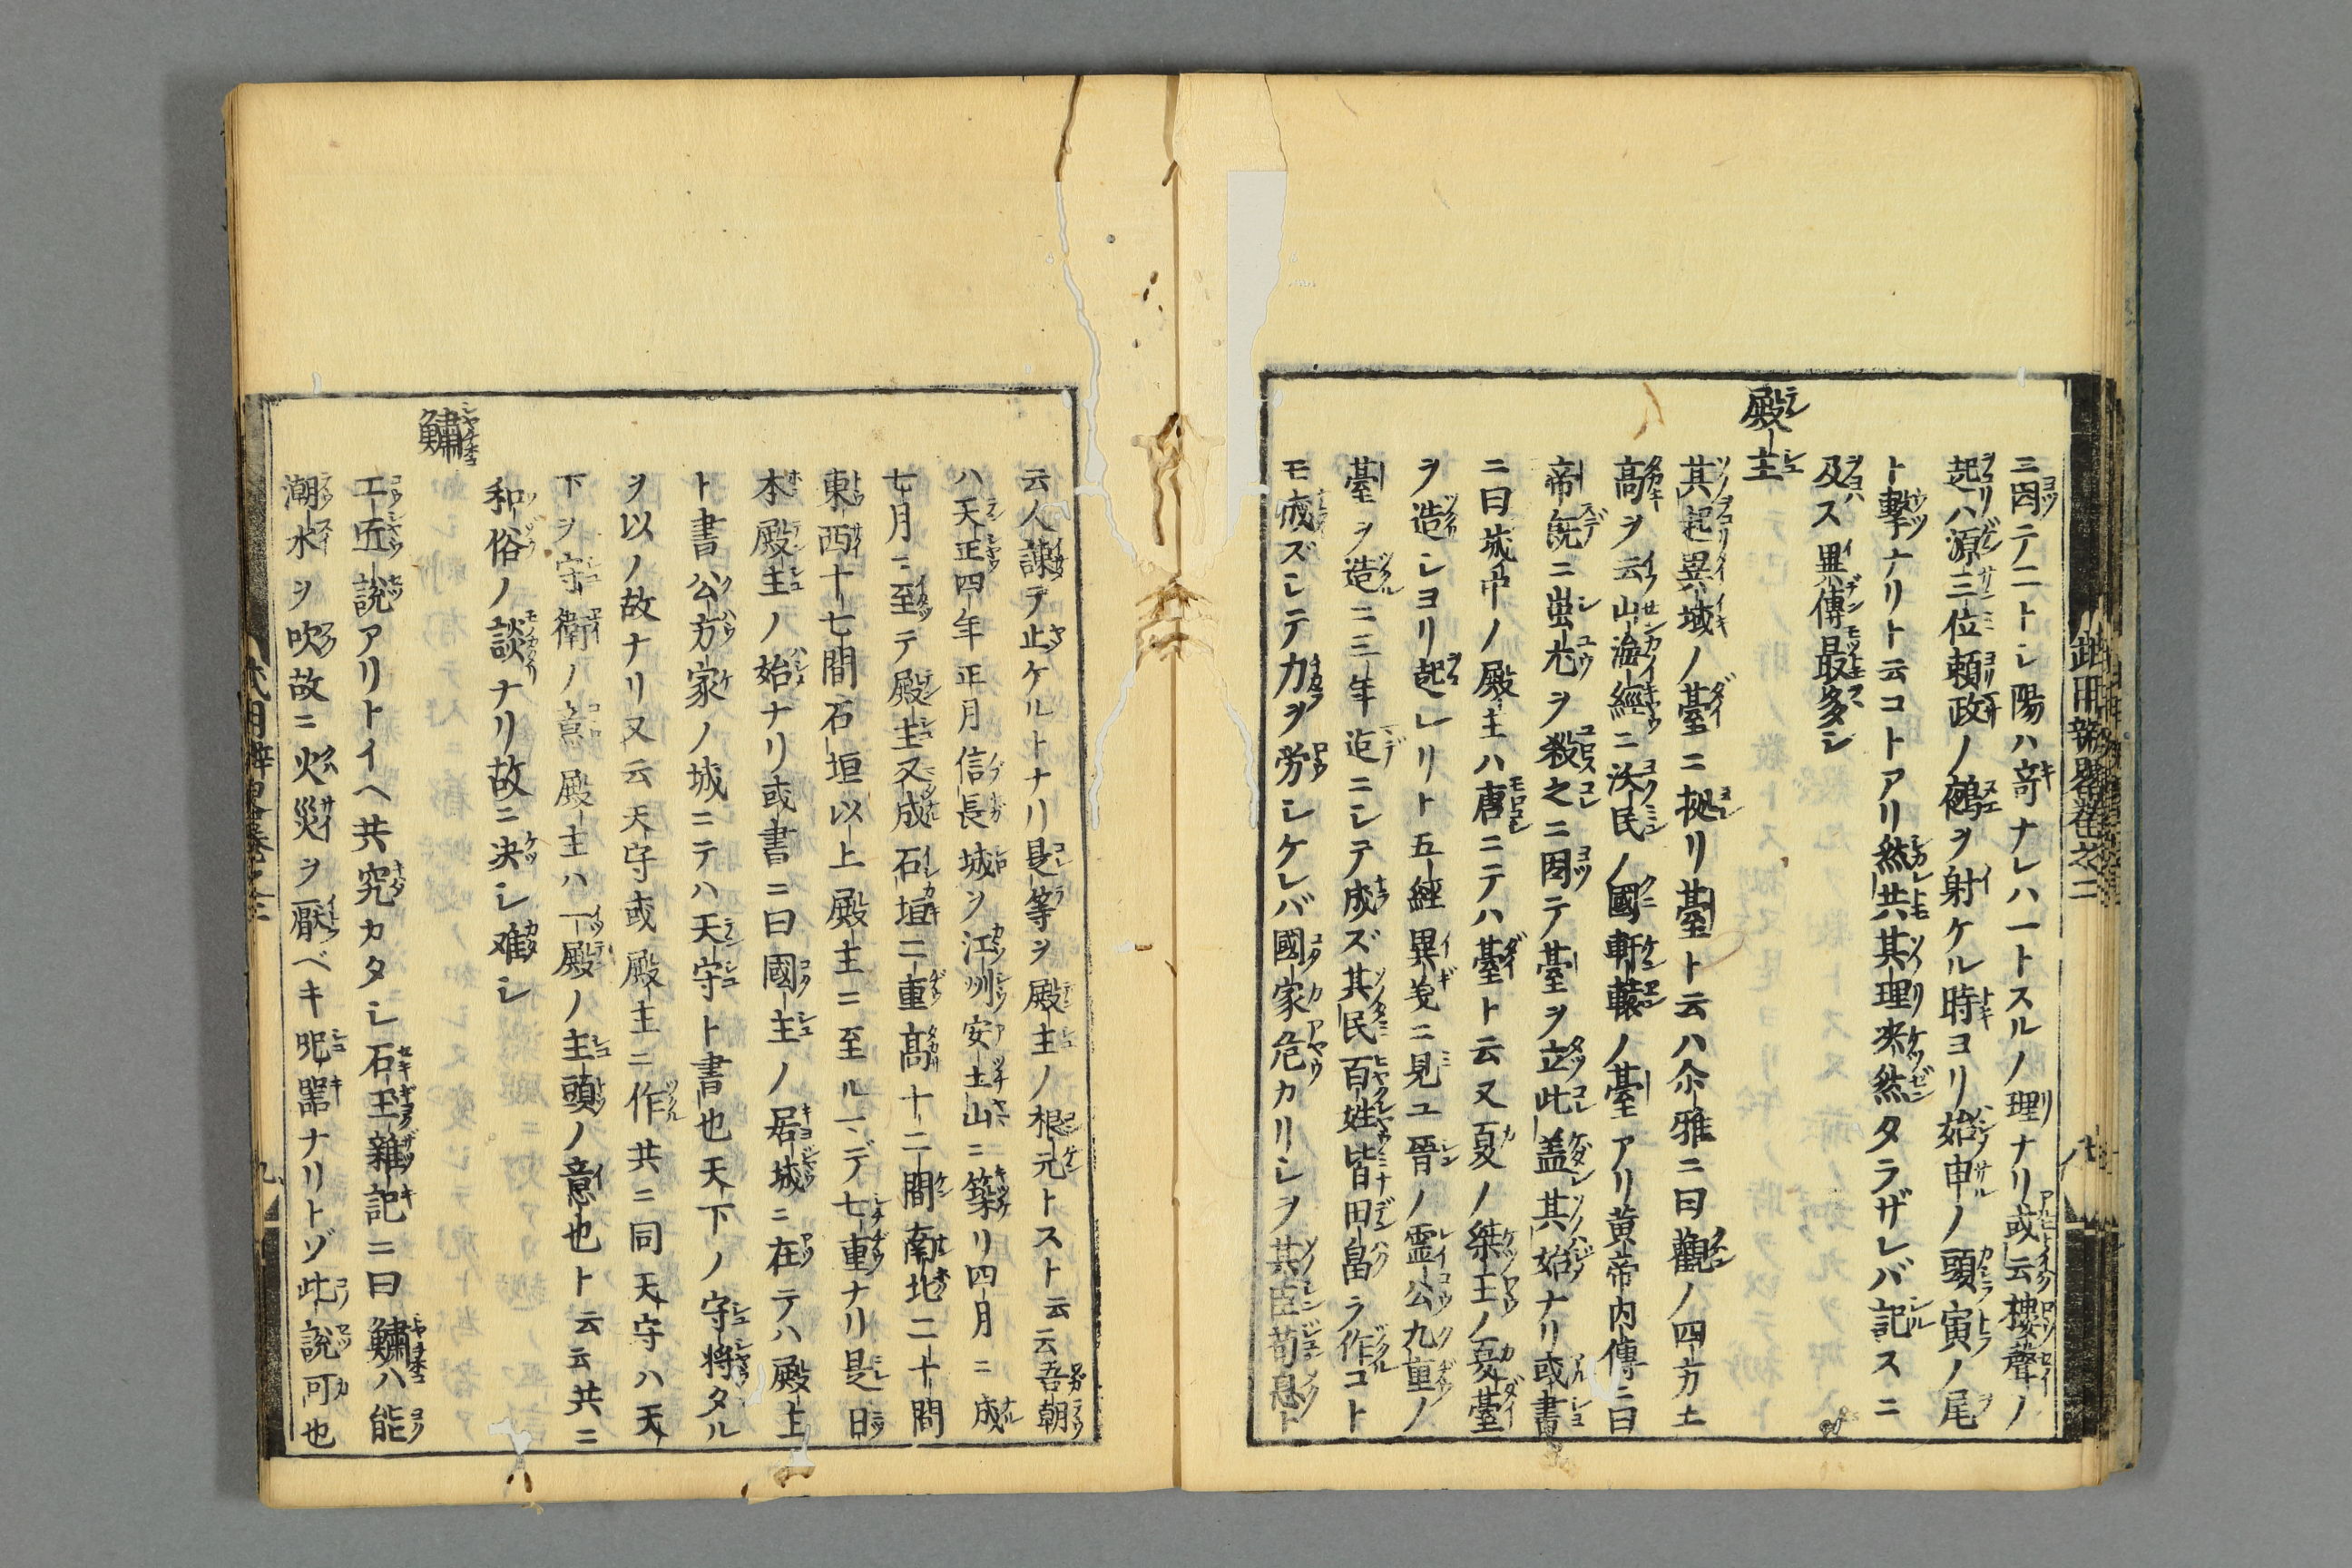 三因テ二トシ陽ハ竒ナレハ一トスルノ理ナリ或云擭聲ノ
起ハ源三位頼政ノ鵺ヲ射ケル時ヨリ始申ノ頭寅ノ尾
ト撃ナリト云コトアリ然共其理决然タラザレバ記スニ
及ス異傳最多シ
殿主
其起異域ノ臺ニ拠リ臺ト云ハ尒雅ニ曰觀ノ四方土
高ヲ云山海經ニ沃民ノ國軒轅ノ臺アリ黄帝内傳ニ曰
帝既ニ蚩尤ヲ殺之ニ因テ臺ヲ立此蓋其始ナリ或書
ニ曰城中ノ殿主ハ唐ニテハ臺ト云又夏ノ桀王ノ夏臺
ヲ造シヨリ起レリト五經異義ニ見ユ晉ノ霊公九重ノ
臺ヲ造ニ三年迠ニシテ成ズ其民百姓皆田畠ラ作コト
モ成ズシテ力ヲ労シケレバ國家危カリシヲ其臣荀息ト
云人諌テ止ケルトナリ是等ヲ殿主ノ根元トスト云云吾朝
ハ天正四年正月信長城ヲ江州安土山ニ築リ四月ニ成
七月ニ至テ殿主又成石垣二重高十二間南北二十間
東西十七間石垣以上殿主ニ至ルマデ七重ナリ是日
本殿主ノ始ナリ或書ニ曰國主ノ居城ニ在テハ殿主
ト書公方家ノ城ニテハ天守ト書也天下ノ守将タル
ヲ以ノ故ナリ又云天守或殿主ニ作共ニ同天守ハ天
下ヲ守衛ノ意殿主ハ下殿ノ主頭ノ意也ト云云共ニ
和俗ノ談ナリ故ニ决シ难シ
鱐
工匠説アリトイヘ共究カタシ石王雜記ニ曰鱐ハ能
潮水ヲ吹故ニ火災ヲ厭ベキ呪噐ナリトゾ此説可也